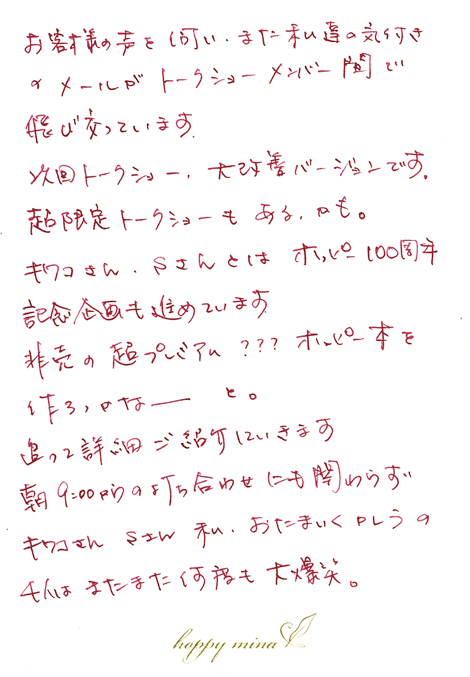 お客様の声を伺い、また私達の気付き
のメールがトークショーメンバー間で
飛び交っています
次回トークショー、大改善バージョンです。
超限定トークショーもある、かも。
キワコさん、Sさんとは ホッピー100周年
記念企画も進めています
非売の超プレミアム ??? ホッピー本を
作ろっかなー と。
追って詳細ご紹介していきます
朝9:00からの打ち合わせにも関わらず
キワコさん Sさん 私、
またまた何度も大爆笑。
hoppy mina